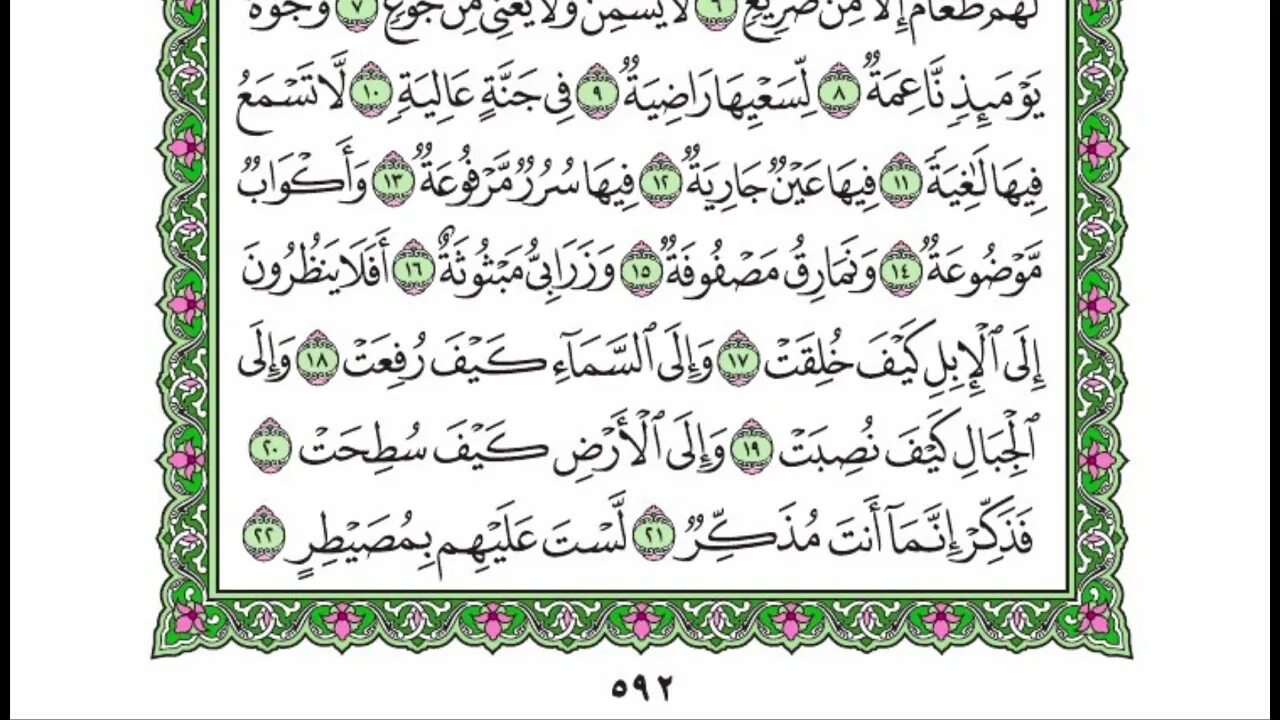 لَهُمْ طَعَامٌ إِلَّا مِن ضَرِيعٍ ٦ لَّا يُسْمِنُ وَلَا يُغْنِي مِن جُوعٍ ٧ وُجُوهٌ
يَوْمَئِذٍ نَّاعِمَةٌ ٨ لِّسَعْيِهَا رَاضِيَةٌ ٩ فِي جَنَّةٍ عَالِيَةٍ ١٠ لَّا تَسْمَعُ
فِيهَا لَٰغِيَةً ١١ فِيهَا عَيْنٌ جَارِيَةٌ ١٢ فِيهَا سُرُرٌ مَّرْفُوعَةٌ ١٣ وَأَكْوَابٌ
مَّوْضُوعَةٌ ١٤ وَنَمَارِقُ مَصْفُوفَةٌ ١٥ وَزَرَابِيُّ مَبْثُوثَةٌ ١٦ أَفَلَا يَنظُرُونَ
إِلَى ٱلْإِبِلِ كَيْفَ خُلِقَتْ ١٧ وَإِلَى ٱلسَّمَآءِ كَيْفَ رُفِعَتْ ١٨ وَإِلَى
ٱلْجِبَالِ كَيْفَ نُصِبَتْ ١٩ وَإِلَى ٱلْأَرْضِ كَيْفَ سُطِحَتْ ٢٠
فَذَكِّرْ إِنَّمَآ أَنتَ مُذَكِّرٌ ٢١ لَّسْتَ عَلَيْهِم بِمُصَيْطِرٍ ٢٢
٥٩٢